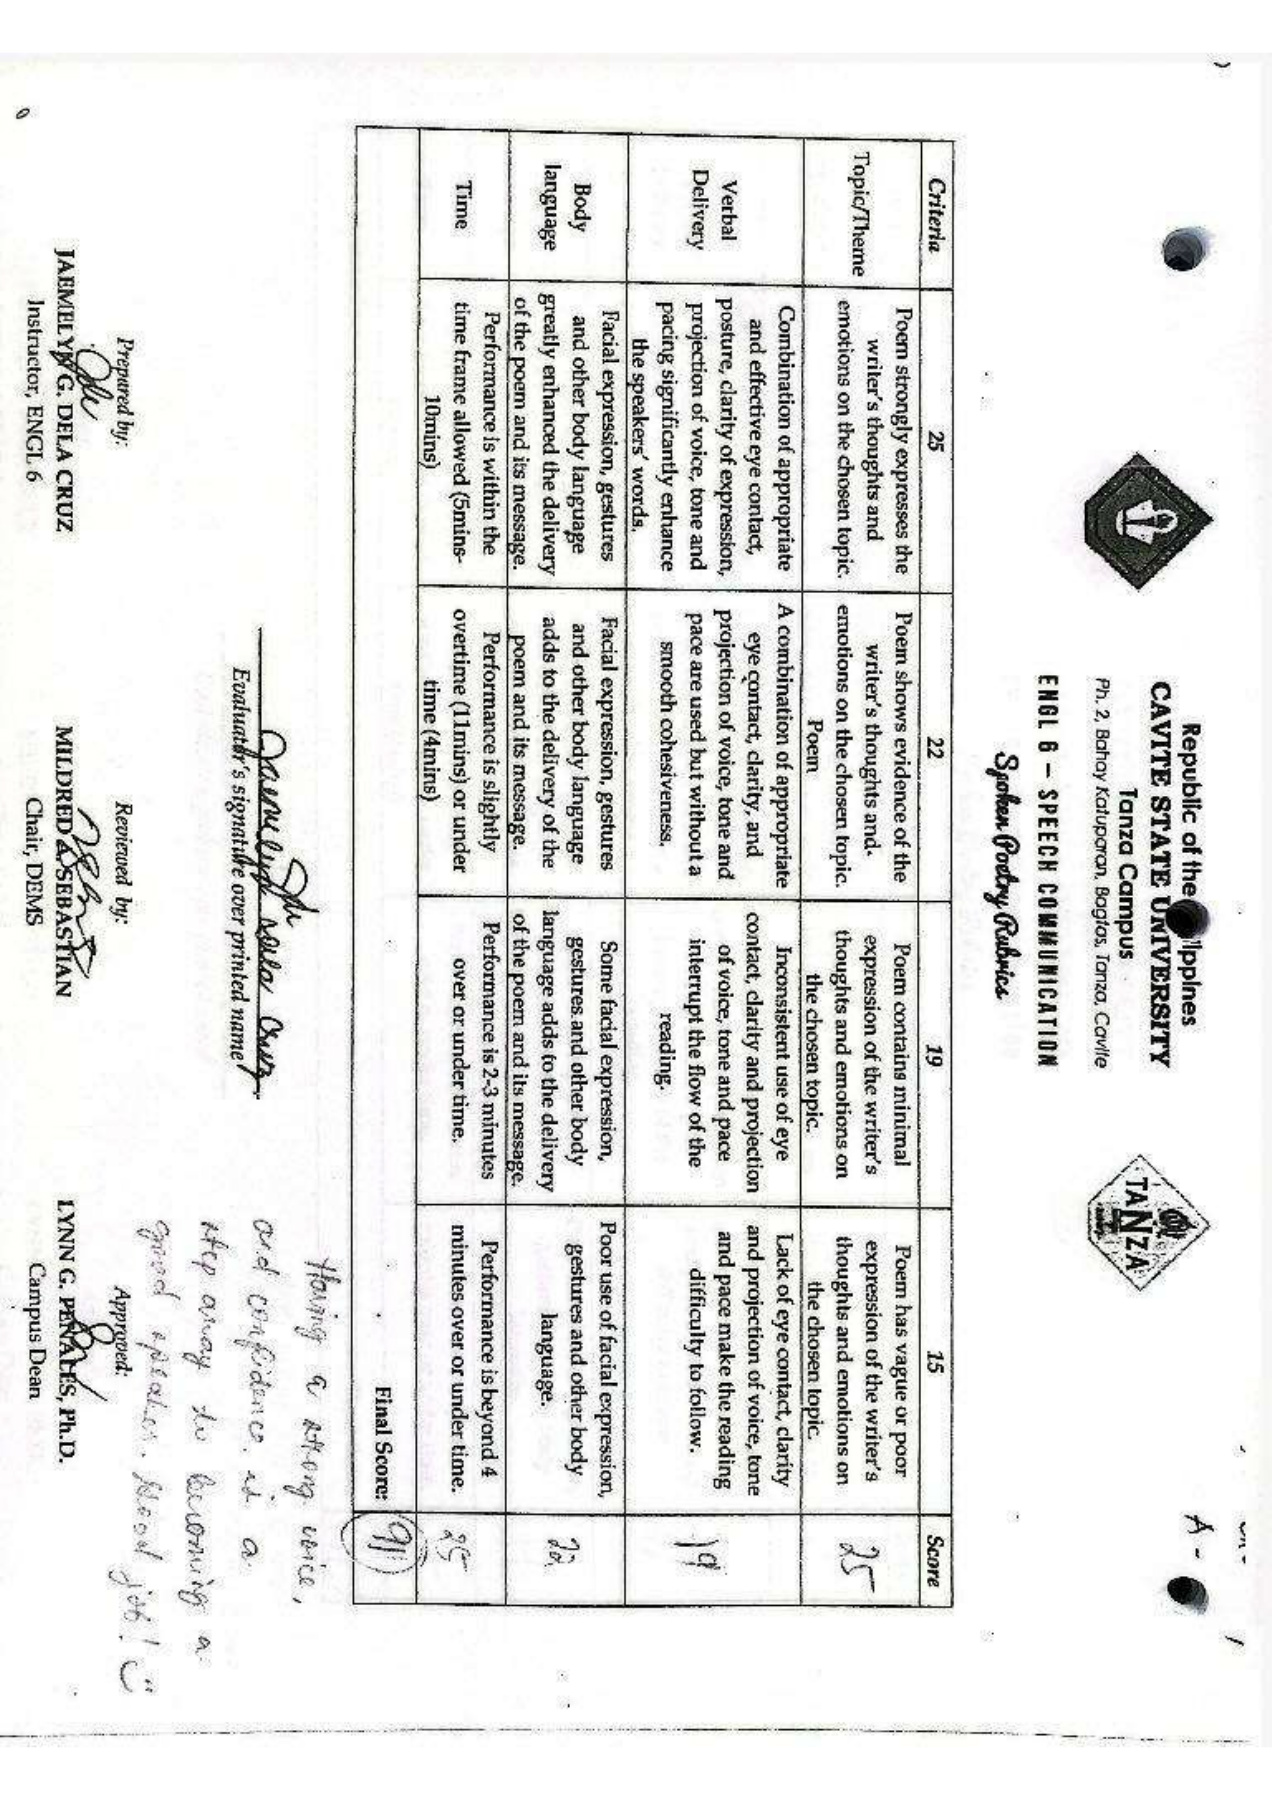 A -
Republic of the
CAVITE STATE UNIVERSITY
Tanza Campus
Ph. 2, Bahay Katuparan, Bagtas, Tanza, Cavite
TANZA
ENGL 6 – SPEECH COMMUNICATION
Spoken Poetry Rubrics
Criteria 25 22 19 15 Score
Topic/Theme
Poem strongly expresses the
writer's thoughts and
emotions on the chosen topic.
Poem shows evidence of the
writer's thoughts and
emotions on the chosen topic.
Poem
Poem contains minimal
expression of the writer's
thoughts and emotions on
the chosen topic.
Poem has vague or poor
expression of the writer's
thoughts and emotions on
the chosen topic.
25
Verbal
Delivery
Combination of appropriate
and effective eye contact,
posture, clarity of expression,
projection of voice, tone and
pacing significantly enhance
the speakers' words.
A combination of appropriate
eye contact, clarity, and
projection of voice, tone and
pace are used but without a
smooth cohesiveness.
Inconsistent use of eye
contact, clarity and projection
of voice, tone and pace
interrupt the flow of the
reading.
Lack of eye contact, clarity
and projection of voice, tone
and pace make the reading
difficulty to follow.
19
Body
language
Facial expression, gestures
and other body language
greatly enhanced the delivery
of the poem and its message.
Facial expression, gestures
and other body language
adds to the delivery of the
poem and its message.
Some facial expression,
gestures and other body
language adds to the delivery
of the poem and its message.
Poor use of facial expression,
gestures and other body
language.
22
Time
Performance is within the
time frame allowed (5mins-
10mins)
Performance is slightly
overtime (11mins) or under
time (4mins)
Performance is 2-3 minutes
over or under time.
Performance is beyond 4
minutes over or under time.
25
Final Score: 91
Having a strong voice,
and confidence is a
step away to becoming a
good speaker. Good job!
Jaemelyn dela Cruz
Evaluator's signature over printed name
Prepared by:
JAEMELYN G. DELA CRUZ
Instructor, ENGL 6
Reviewed by:
MILDRED A. SEBASTIAN
Chair, DEMS
Approved:
LYNN G. PEÑALES, Ph.D.
Campus Dean